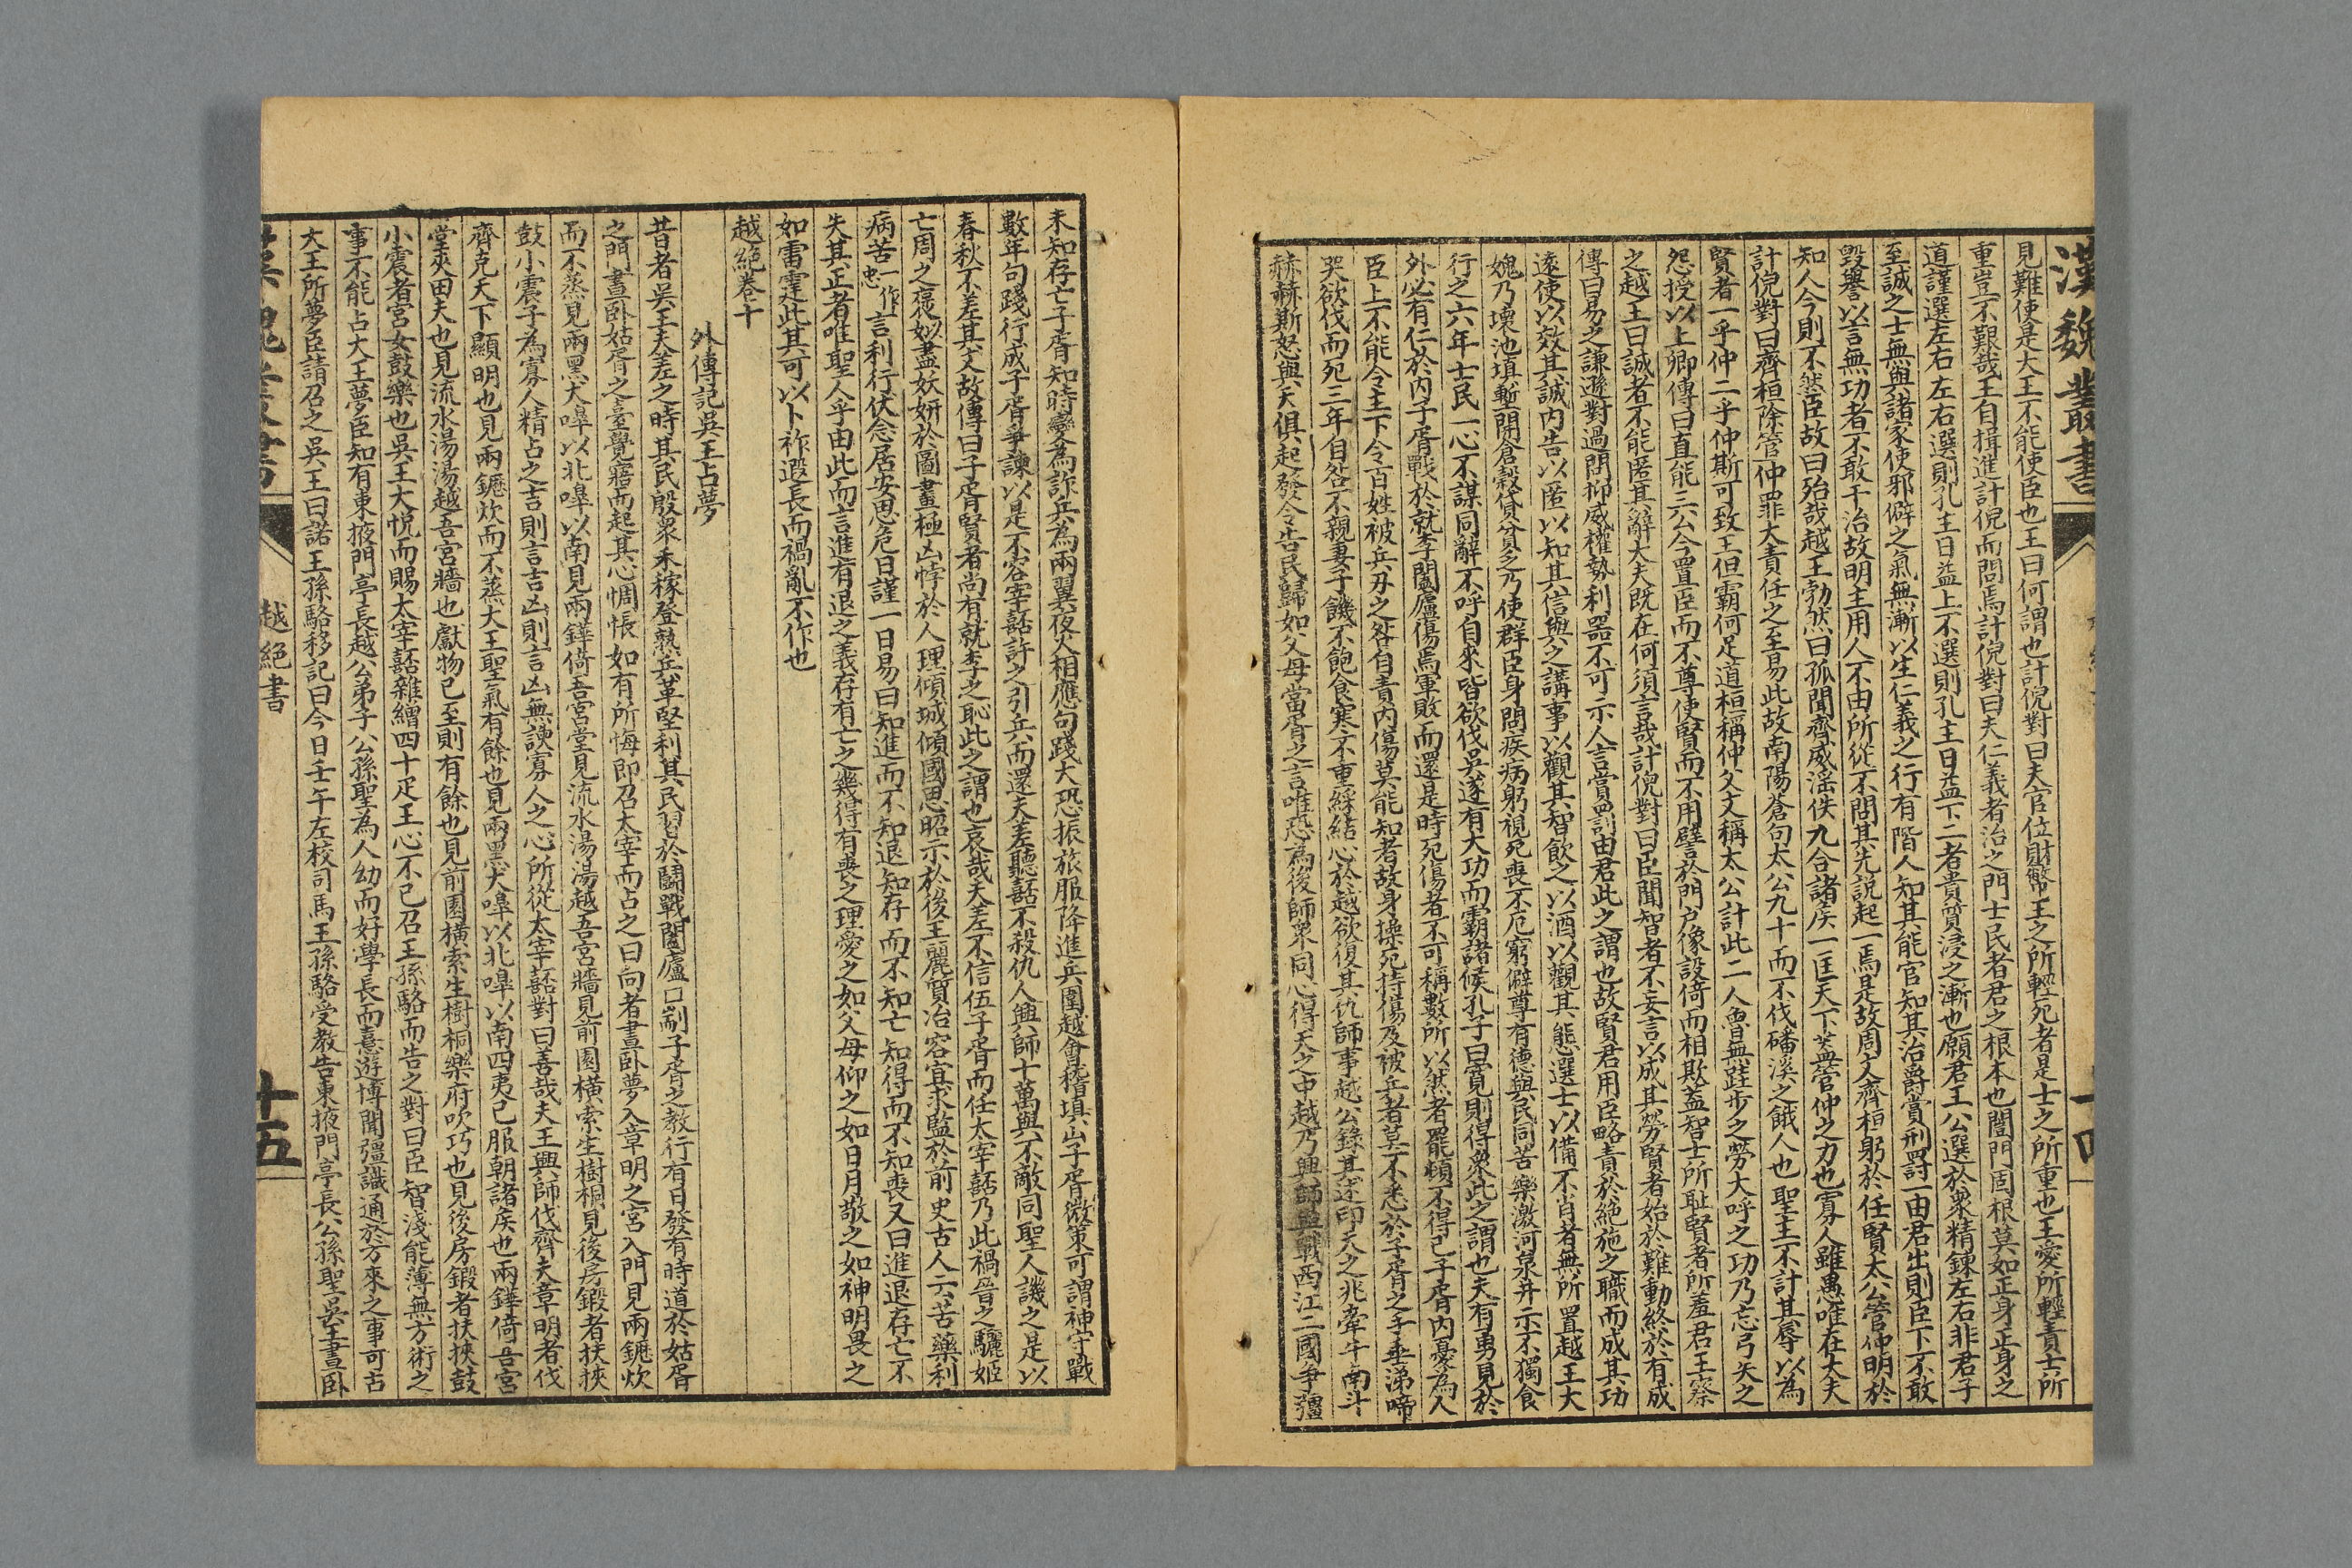 漢魏叢書
十四
見難使是大王不能使臣也王曰何謂也計倪對曰夫官位財幣王之所輕死者是士之所重也王愛所輕責士所
重豈不艱哉王自揖進計倪而問焉計倪對曰夫仁義者治之門士民者君之根本也闓門固根莫如正身正身之
道謹選左右左右選則孔主日益上不選則孔主日益下二者貴質浸之漸也願君王公選於衆精鍊左右非君子
至誠之士無與諸家使邪僻之氣無漸以生仁義之行有階人知其能官知其治爵賞刑罰一由君出則臣下不敢
毀譽以言無功者不敢干治故明主用人不由所從不問其先說起一焉是故周文齊桓躬於任賢太公管仲明於
知人今則不然臣故曰殆哉越王勃然曰孤聞齊威淫佚九合諸侯一匡天下蓋管仲之力也寡人雖愚唯在大夫
計倪對曰齊桓除管仲罪大責任之至易此故南陽蒼句太公九十而不伐磻溪之餓人也聖主不計其辱以為
賢者一乎仲二乎仲斯可致王但霸何足道桓稱仲父文稱太公計此二人曾無跬步之勞大呼之功乃忘弓矢之
怨授以上卿傳曰直能三公今置臣而不尊使賢而不用譬於門戶像設倚而相欺蓋智士所耻賢者所羞君王察
之越王曰誠者不能匿其辭大夫既在何須言哉計倪對曰臣聞智者不妄言以成其勞賢者始於難動終於有成
傳曰易之謙遜對過問抑威權勢利器不可示人言賞罰由君此之謂也故賢君用臣略責於絕施之職而成其功
遠使以效其誠內告以匿以知其信與之講事以觀其智飲之以酒以觀其態選士以備不肖者無所置越王大
媿乃壞池填塹開倉穀貸貧乏乃使群臣身問疾病躬視死喪不厄窮僻尊有德與民同苦樂激河泉井示不獨食
行之六年士民一心不謀同辭不呼自來皆欲伐吳遂有大功而霸諸侯孔子曰寬則得衆此之謂也夫有勇見於
外必有仁於內子胥戰於就李闔廬傷焉軍敗而還是時死傷者不可稱數所以然者罷頓不得已子胥內憂為人
臣上不能令主下令百姓被兵刃之咎自責內傷莫能知者故身操死持傷及被兵者莫不悉於子胥之手垂涕啼
哭欲伐而死三年自咎不親妻子饑不飽食寒不重綵結心於越欲復其仇師事越公錄其述印天之兆牽牛南斗
赫赫斯怒與天俱起發令告民歸如父母當胥之言唯恐為後師衆同心得天之中越乃興師與戰西江二國爭彊
未知存亡子胥知時變為詐兵為兩翼夜火相應句踐大恐振旅服降進兵圍越會稽填山子胥微策可謂神守戰
數年句踐行成子胥爭諫以是不容宰嚭許之引兵而還夫差聽嚭不殺仇人興師十萬與不敵同聖人譏之是以
春秋不差其文故傳曰子胥賢者尚有就李之恥此之謂也哀哉夫差不信伍子胥而任太宰嚭乃此禍晉之驪姬
亡周之褒姒盡妖妍於圖畫極凶悖於人理傾城傾國思昭示於後王麗質冶容宜求監於前史古人云苦藥利
病苦一作忠言利行伏念居安思危日謹一日易曰知進而不知退知存而不知亡知得而不知喪又曰進退存亡不
失其正者唯聖人乎由此而言進有退之義存有亡之幾得有喪之理愛之如父母仰之如日月敬之如神明畏之
如雷霆此其可以卜祚遐長而禍亂不作也
越絕卷十
外傳記吳王占夢
昔者吳王夫差之時其民殷衆禾稼登熟兵革堅利其民習於鬪戰闔廬口剬子胥之教行有日發有時道於姑胥
之門晝卧姑胥之臺覺寤而起其心惆悵如有所悔即召太宰而占之曰向者晝卧夢入章明之宮入門見兩鑩炊
而不蒸見兩黑犬嘷以北嘷以南見兩鏵倚吾宮堂見流水湯湯越吾宮牆見前園橫索生樹桐見後房鍛者扶挾
鼓小震子為寡人精占之吉則言吉凶則言凶無諛寡人之心所從太宰嚭對曰善哉夫王興師伐齊夫章明者伐
齊克天下顯明也見兩鑩炊而不蒸大王聖氣有餘也見兩黑犬嘷以北嘷以南四夷已服朝諸侯也兩鏵倚吾宮
堂夾田夫也見流水湯湯越吾宮牆也獻物已至則有餘也見前園橫索生樹桐樂府吹巧也見後房鍛者扶挾鼓
小震者宮女鼓樂也吳王大悅而賜太宰嚭雜繒四十疋王心不已召王孫駱而告之對曰臣智淺能薄無方術之
事不能占大王夢臣知有東掖門亭長越公弟子公孫聖為人幼而好學長而憙遊博聞彊識通於方來之事可占
大王所夢臣請召之吳王曰諾王孫駱移記曰今日壬午左校司馬王孫駱受教告東掖門亭長公孫聖吳王晝卧
越絕書
十五